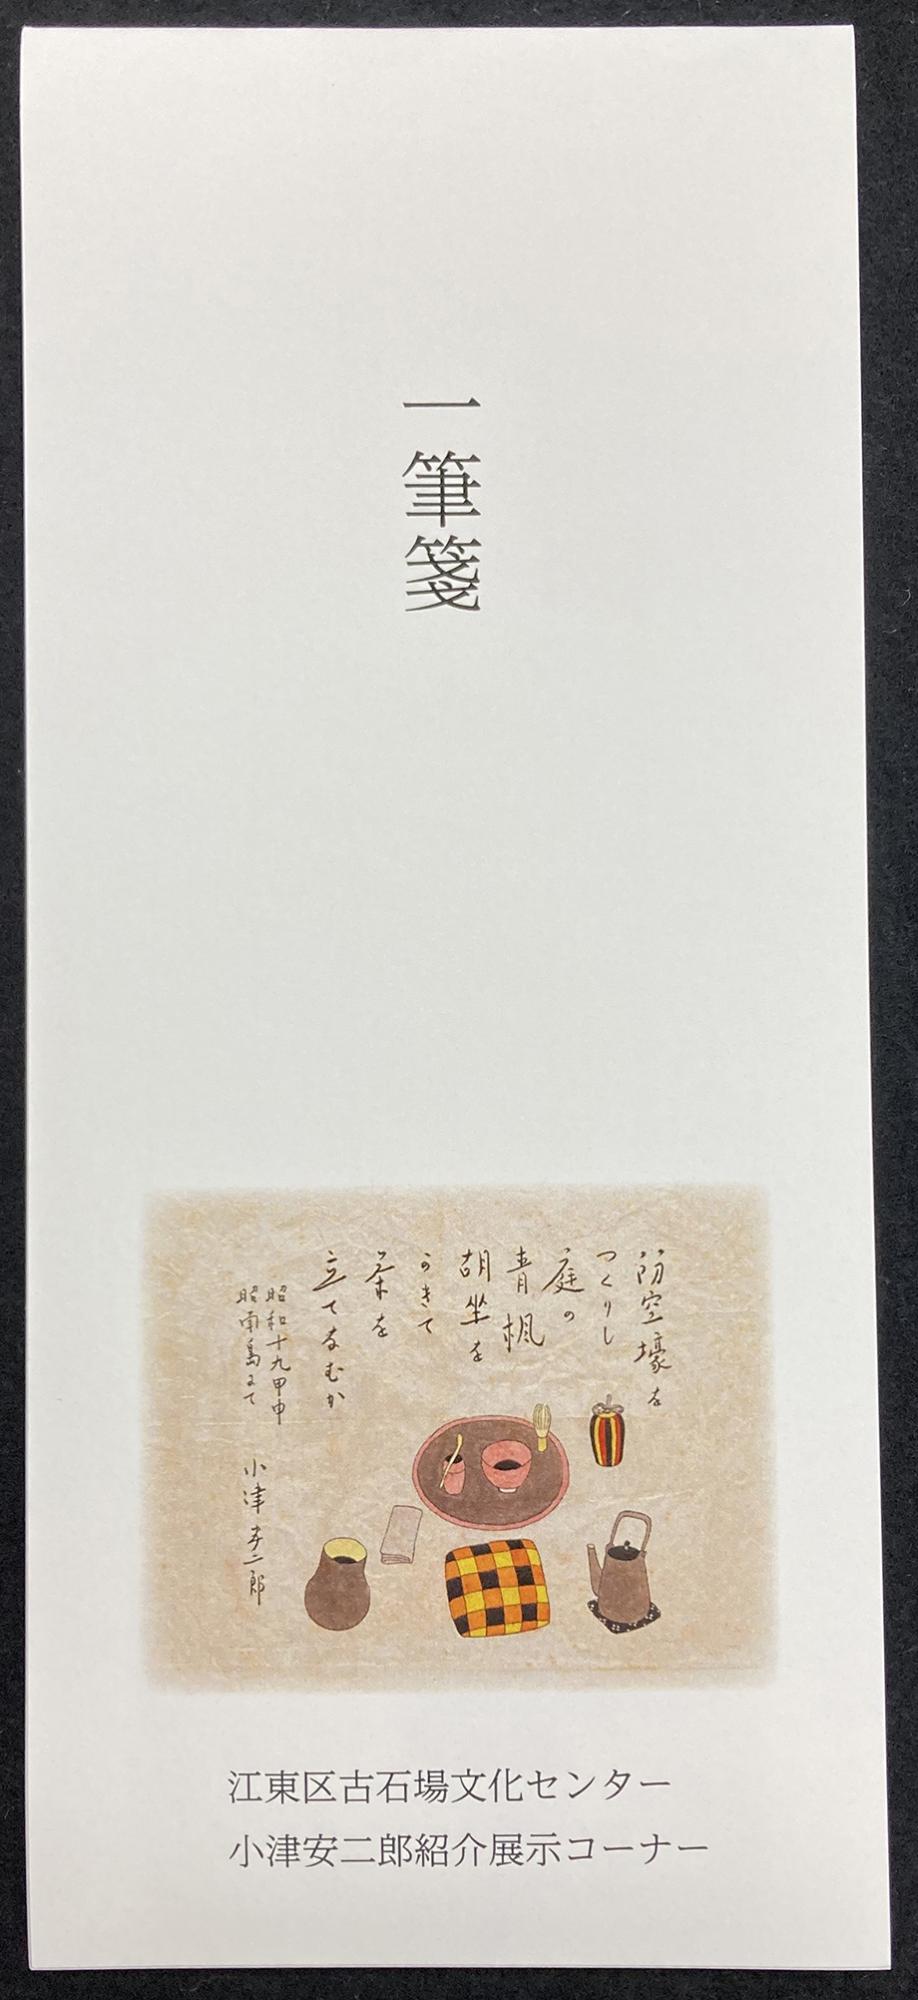 一筆箋
防空壕を
つくりし
庭の
青楓
胡坐を
かきて
茶を
立てなむか
昭和十九甲申
昭南島にて
小津安二郎
江東区古石場文化センター
小津安二郎紹介展示コーナー